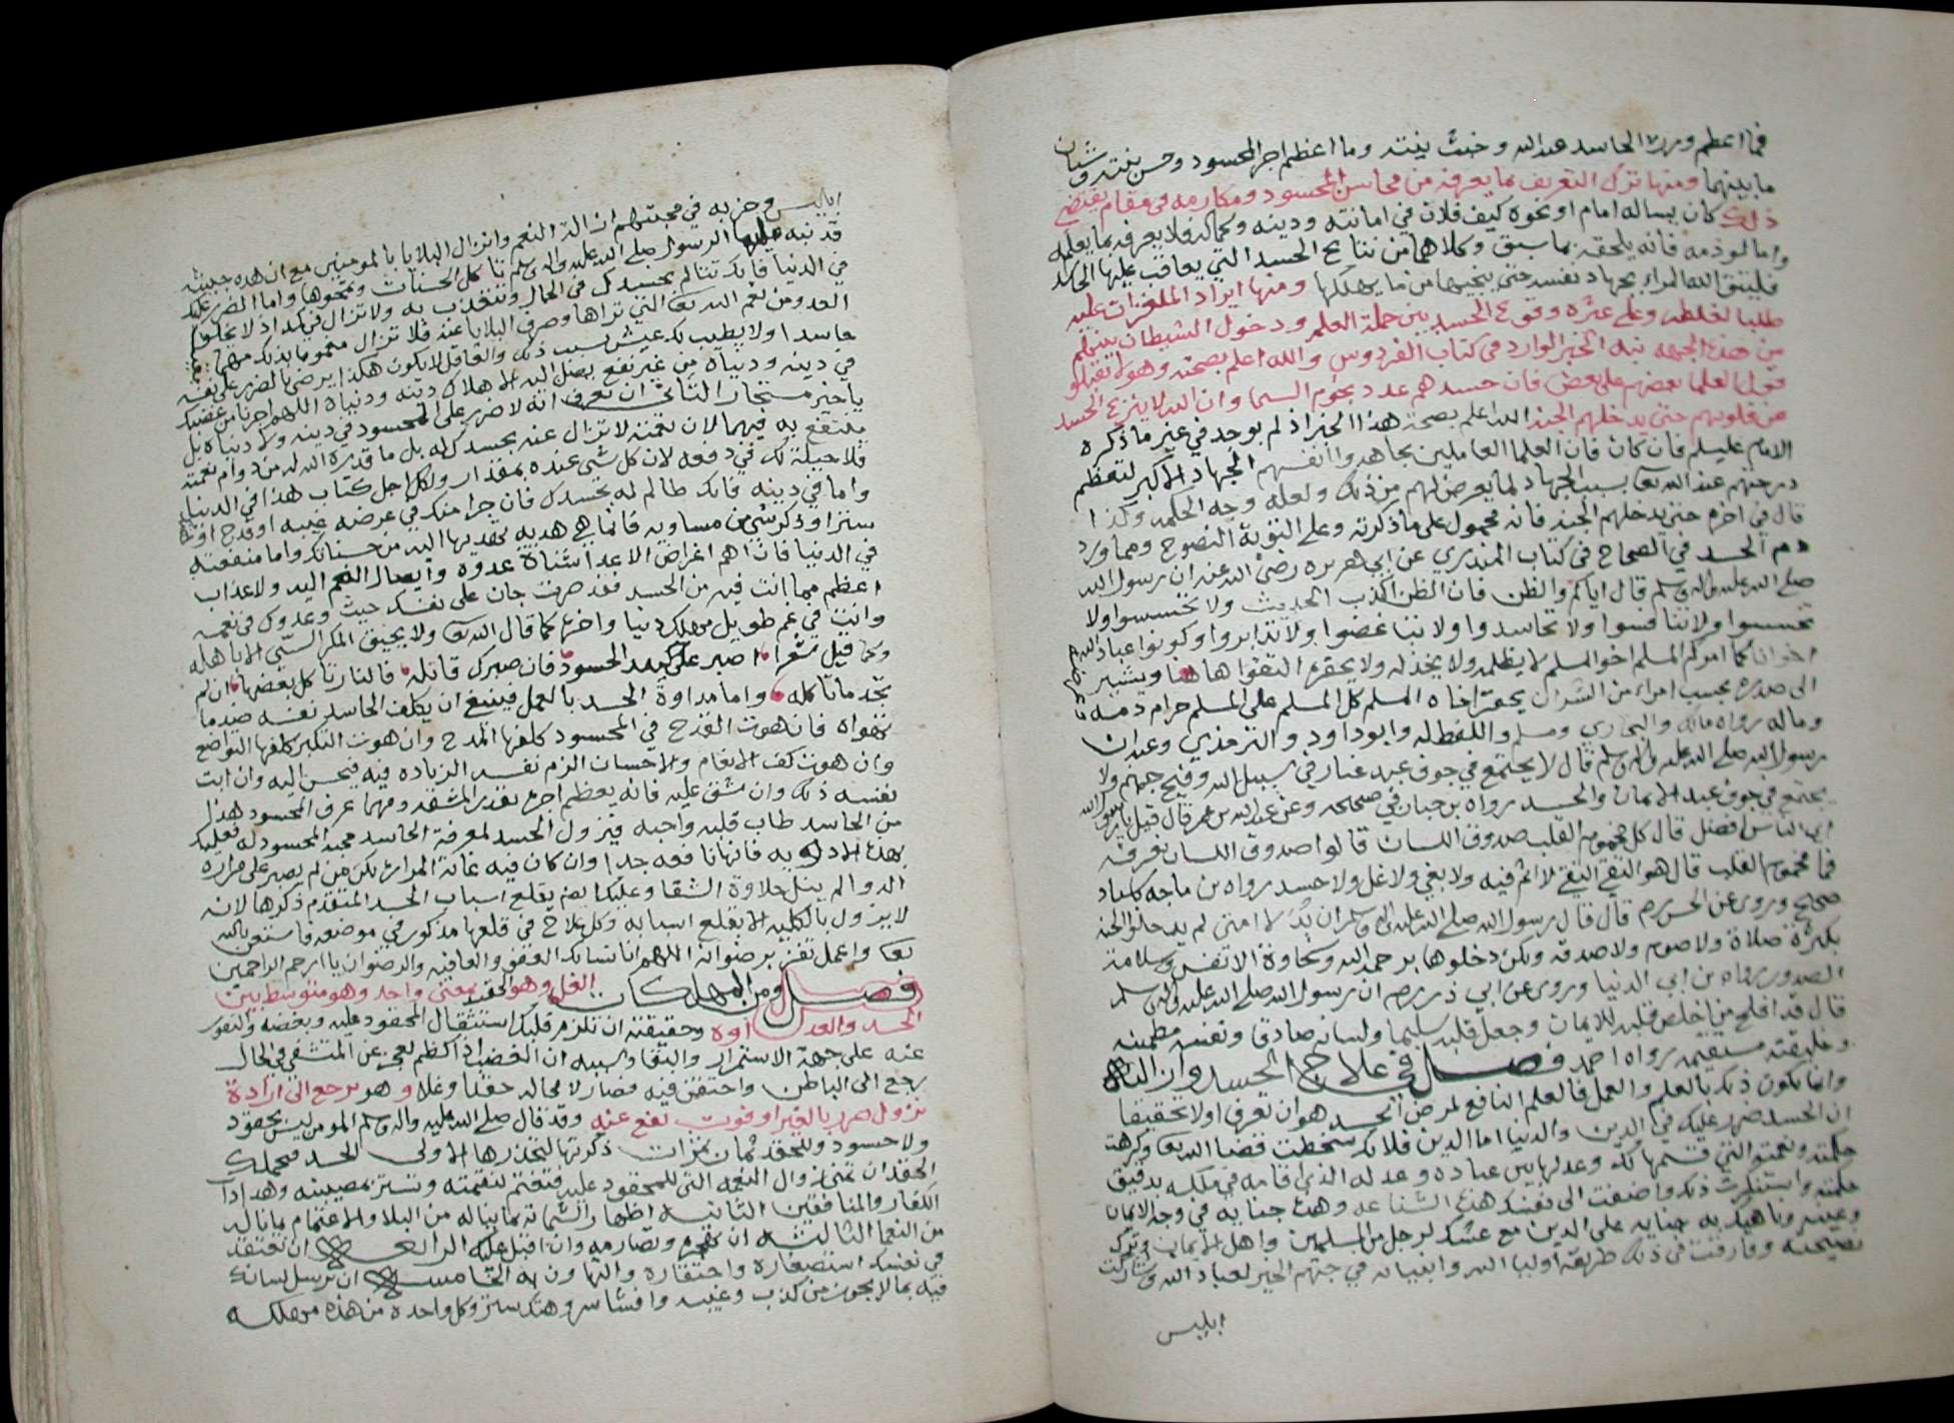 فما اعظم وزر الحاسد عند الله وخبث نيته وما اعظم اجر المحسود وحسن نيته وشتان
ما بينهما ومنها ترك التعريف بما يعرفه من محاسن المحسود ومكارمه في مقام يقتضي
ذلك كان يساله امام او نحوه كيف فلان في امانته ودينه وكماله فلا يعرفه بما يعلمه
واما لو ذمه فانه يلحقه بما سبق وكلاهما من نتايج الحسد التي يعاقب عليها الحاسد
فليتق الله المراء بجهاد نفسه حتى ينجيها من ما يهلكها ومنها ايراد الملغزات عليه
طلبا لغلطه وعلى عثره وقوع الحسد بين حملة العلم ودخول الشيطان بينهم
من هذه الجهه نبه الخبر الوارد في كتاب الفردوس والله اعلم بصحته وهو لا تقبلوا
قول العلما بعضهم على بعض فان حسدهم عدد نجوم السما وان الله لا ينزع الحسد
من قلوبهم حتى يدخلهم الجنه الله اعلم بصحة هذا الخبر اذ لم يوجد في غير ما ذكره
الامام عليلم فان كان فان العلما العاملين يجاهدوا انفسهم الجهاد الاكبر لتعظم
درجتهم عند الله تعا بسبب الجهاد لما يعرض لهم من ذلك ولعله وجه الحكمه وكذا
قال في اخره حتى يدخلهم الجنه فانه محمول على ما ذكرته وعلى التوبة النصوح ومما ورد
ذم الحسد في الصحاح في كتاب المنذري عن ابي هريره رضي الله عنه ان رسول الله
صلى الله عليه واله وسلم قال اياكم والظن فان الظن اكذب الحديث ولا تجسسوا ولا
تحسسوا ولا تنافسوا ولا تحاسدوا ولا تباغضوا ولا تدابروا وكونوا عباد الله
اخوانا كما امركم المسلم اخو المسلم لا يظلمه ولا يخذله ولا يحقره التقوا هاهنا ويشير
الى صدره بحسب امراء من الشر ان يحقر اخاه المسلم كل المسلم على المسلم حرام دمه
وماله رواه مالك والبخاري ومسلم واللفظ له وابو داود والترمذي وعنه ان
رسول الله صلى الله عليه واله وسلم قال لا يجتمع في جوف عبد غبار في سبيل الله وفيح جهنم ولا
يجتمع في جوف عبد الايمان والحسد رواه بن حبان في صحيحه وعن عبد الله بن عمر قال قيل يا رسول الله
اي الناس افضل قال كل مخموم القلب صدوق اللسان قالوا صدوق اللسان نعرفه
فما مخموم القلب قال هو التقي النقي لا اثم فيه ولا بغي ولا غل ولا حسد رواه بن ماجه باسناد
صحيح وروي عن الحسن قال قال رسول الله صلى الله عليه واله وسلم ان بدلا امتي لم يدخلوا الجنه
بكثرة صلاة ولا صوم ولا صدقه ولكن دخلوها برحمة الله وسخاوة الانفس وسلامة
الصدور رواه بن ابي الدنيا وروي عن ابي ذر ان رسول الله صلى الله عليه واله وسلم
قال قد افلح من اخلص قلبه للايمان وجعل قلبه سليما ولسانه صادقا ونفسه مطمينه
وخليقته مستقيمه رواه احمد فصل في علاج الحسد
وانما يكون ذلك بالعلم والعمل فالعلم النافع لمرض الحسد هو ان تعرف اولا تحقيقا
ان الحسد ضرر عليك في الدين والدنيا اما الدين فلانك سخطت قضا الله تعا وكرهت
حكمته ونعمته التي قسمها لك وعدلها بين عباده وعدله الذي اقامه في ملكه بدقيق
حكمته واستنكرت ذلك واضفت الى نفسك هذه الشناعه وهذه جنايه في وجه الايمان
وعينه وناهيك به جنايه على الدين مع غشك لرجل من المسلمين واهل الايمان وترك
نصيحته وفارقت في ذلك طريقة اوليا الله وانبيائه في حبهم الخير لعباد الله وشاركت
ابليس
ابليس وحزبه في محبتهم ازالة النعم وانزال البلايا بالمومنين مع ان هذه خبيثه
قد نبه عليها الرسول صلى الله عليه واله وسلم تاكل الحسنات وتمحوها واما الضرر عليك
في الدنيا فانك تتالم بحسدك في الحال وتتعذب به ولا تزال في كمد اذ لا يخلو
العدو من نعم الله تعا التي تراها وصرف البلايا عنه فلا تزال مغموما بذلك مهما
حاسدا ولا يطيب لك عيش بسبب ذلك والعاقل لا يكون هكذا يرضى بالضرر على نفسه
في دينه ودنياه من غير نفع يصل اليه الا هلاك دينه ودنياه اللهم اجرنا من غضبك
يا خير مستجار الثاني ان تعرف انه لا ضرر على المحسود في دينه ولا دنياه بل
ينتفع به فيهما لان نعمته لا تزال عنه بحسدك له بل ما قدره الله له من دوام نعمته
فلا حيلة لك في دفعه لان كل شي عنده بمقدار ولكل اجل كتاب هذا في الدنيا
واما في دينه فانك ظالم له بحسدك فان جرا منك في عرضه غيبه او قدح او
ستر او ذكر شي من مساويه فانما هي هديه تهديها اليه من حسناتك واما منفعته
في الدنيا فان اهم اغراض الاعدا شناة عدوه وايصال الغم اليه ولا عذاب
اعظم مما انت فيه من الحسد فقد صرفت جان على نفسك حيث وعدوك في نعمه
وانت في غم طويل مهلك دنيا واخره كما قال الله تعا ولا يحيق المكر السيي الا باهله
وكما قيل شعرا اصبر على كيد الحسود فان صبرك قاتله فالنار تاكل بعضها ان لم
تجد ما تاكله واما مداواة الحسد بالعمل فينبغي ان يكلف الحاسد نفسه ضد ما
تهواه فان هوت القدح في المحسود كلفها المدح وان هوت التكبر كلفها التواضع
وان هوت كف الانعام والاحسان الزم نفسه الزياده فيه فيحسن اليه وان ابت
نفسه ذلك وان شق عليه فانه يعظم اجره بقدر المشقه ومهما عرف المحسود هذا
من الحاسد طاب قلبه واحبه فيزول الحسد لمعرفة الحاسد محبة المحسود له فعليك
بهذه الادويه فانها نافعه جدا وان كان فيه غاية المراره لكن من لم يصبر على مراره
الدوا لم ينل حلاوة الشفا وعليك ايضا بقلع اسباب الحسد المتقدم ذكرها لانه
لا يزول بالكليه الا بقلع اسبابه وكل علاج في قلعها مذكور في موضعه فاستعن بالله
تعا واعمل تفز برضوانه اللهم انا نسالك العفو والعافيه والرضوان يا ارحم الراحمين
فصل ومن المهلكات الغل وهو الحقد بمعنى واحد وهو متوسط بين
الحسد والعداوه وحقيقته ان تلزم قلبك استثقال المحقود عليه وبغضه والنفور
عنه على جهة الاستمرار والبقا وسببه ان الغضب اذا كظم لعجز عن المتشفي في الحال
رجع الى الباطن واحتقن فيه فصار لا محاله حقدا وغلا وهو يرجع الى ارادة
نزول ضرر بالغير او فوت نفع عنه وقد قال صلى الله عليه واله وسلم المومن ليس بحقود
ولا حسود وللحقد ثمان ثمرات ذكرتها لتحذرها الاولى الحسد فيحملك
الحقد ان تتمنى زوال النعمه التي للمحقود عليه فتغتم لنعمته وتسر بمصيبته وهذا داب
الكفار والمنافقين الثانيه اظهار الشماته بما يناله من البلا والاغتمام بما ناله
من النعما الثالثه ان تهجره وتصارمه وان اقبل عليك الرابعه ان تعتقد
في نفسك استصغاره واحتقاره والتهاون به الخامسه ان ترسل لسانك
فيه بما لا يجوز من كذب وغيبه وافشا سر وهتك ستر وكل واحده من هذه مهلكه